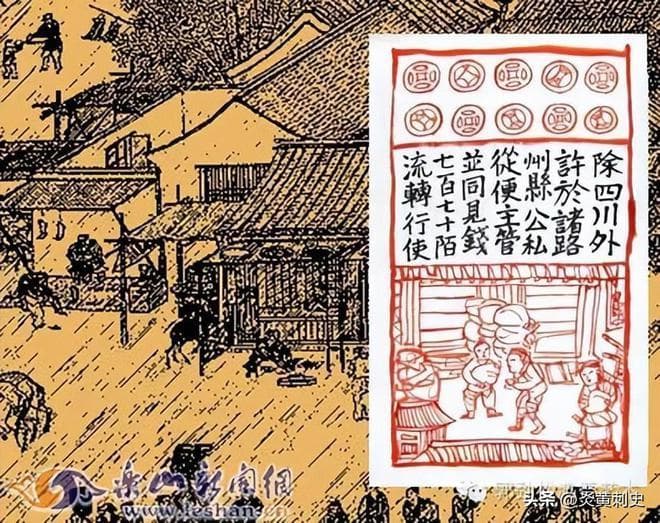 除四川外
許於諸路
州縣公私
從便主管
並同見錢
七百七十陌
流轉行使
乐山新闻網
www.leshan.cn
头条 @炎董刺史